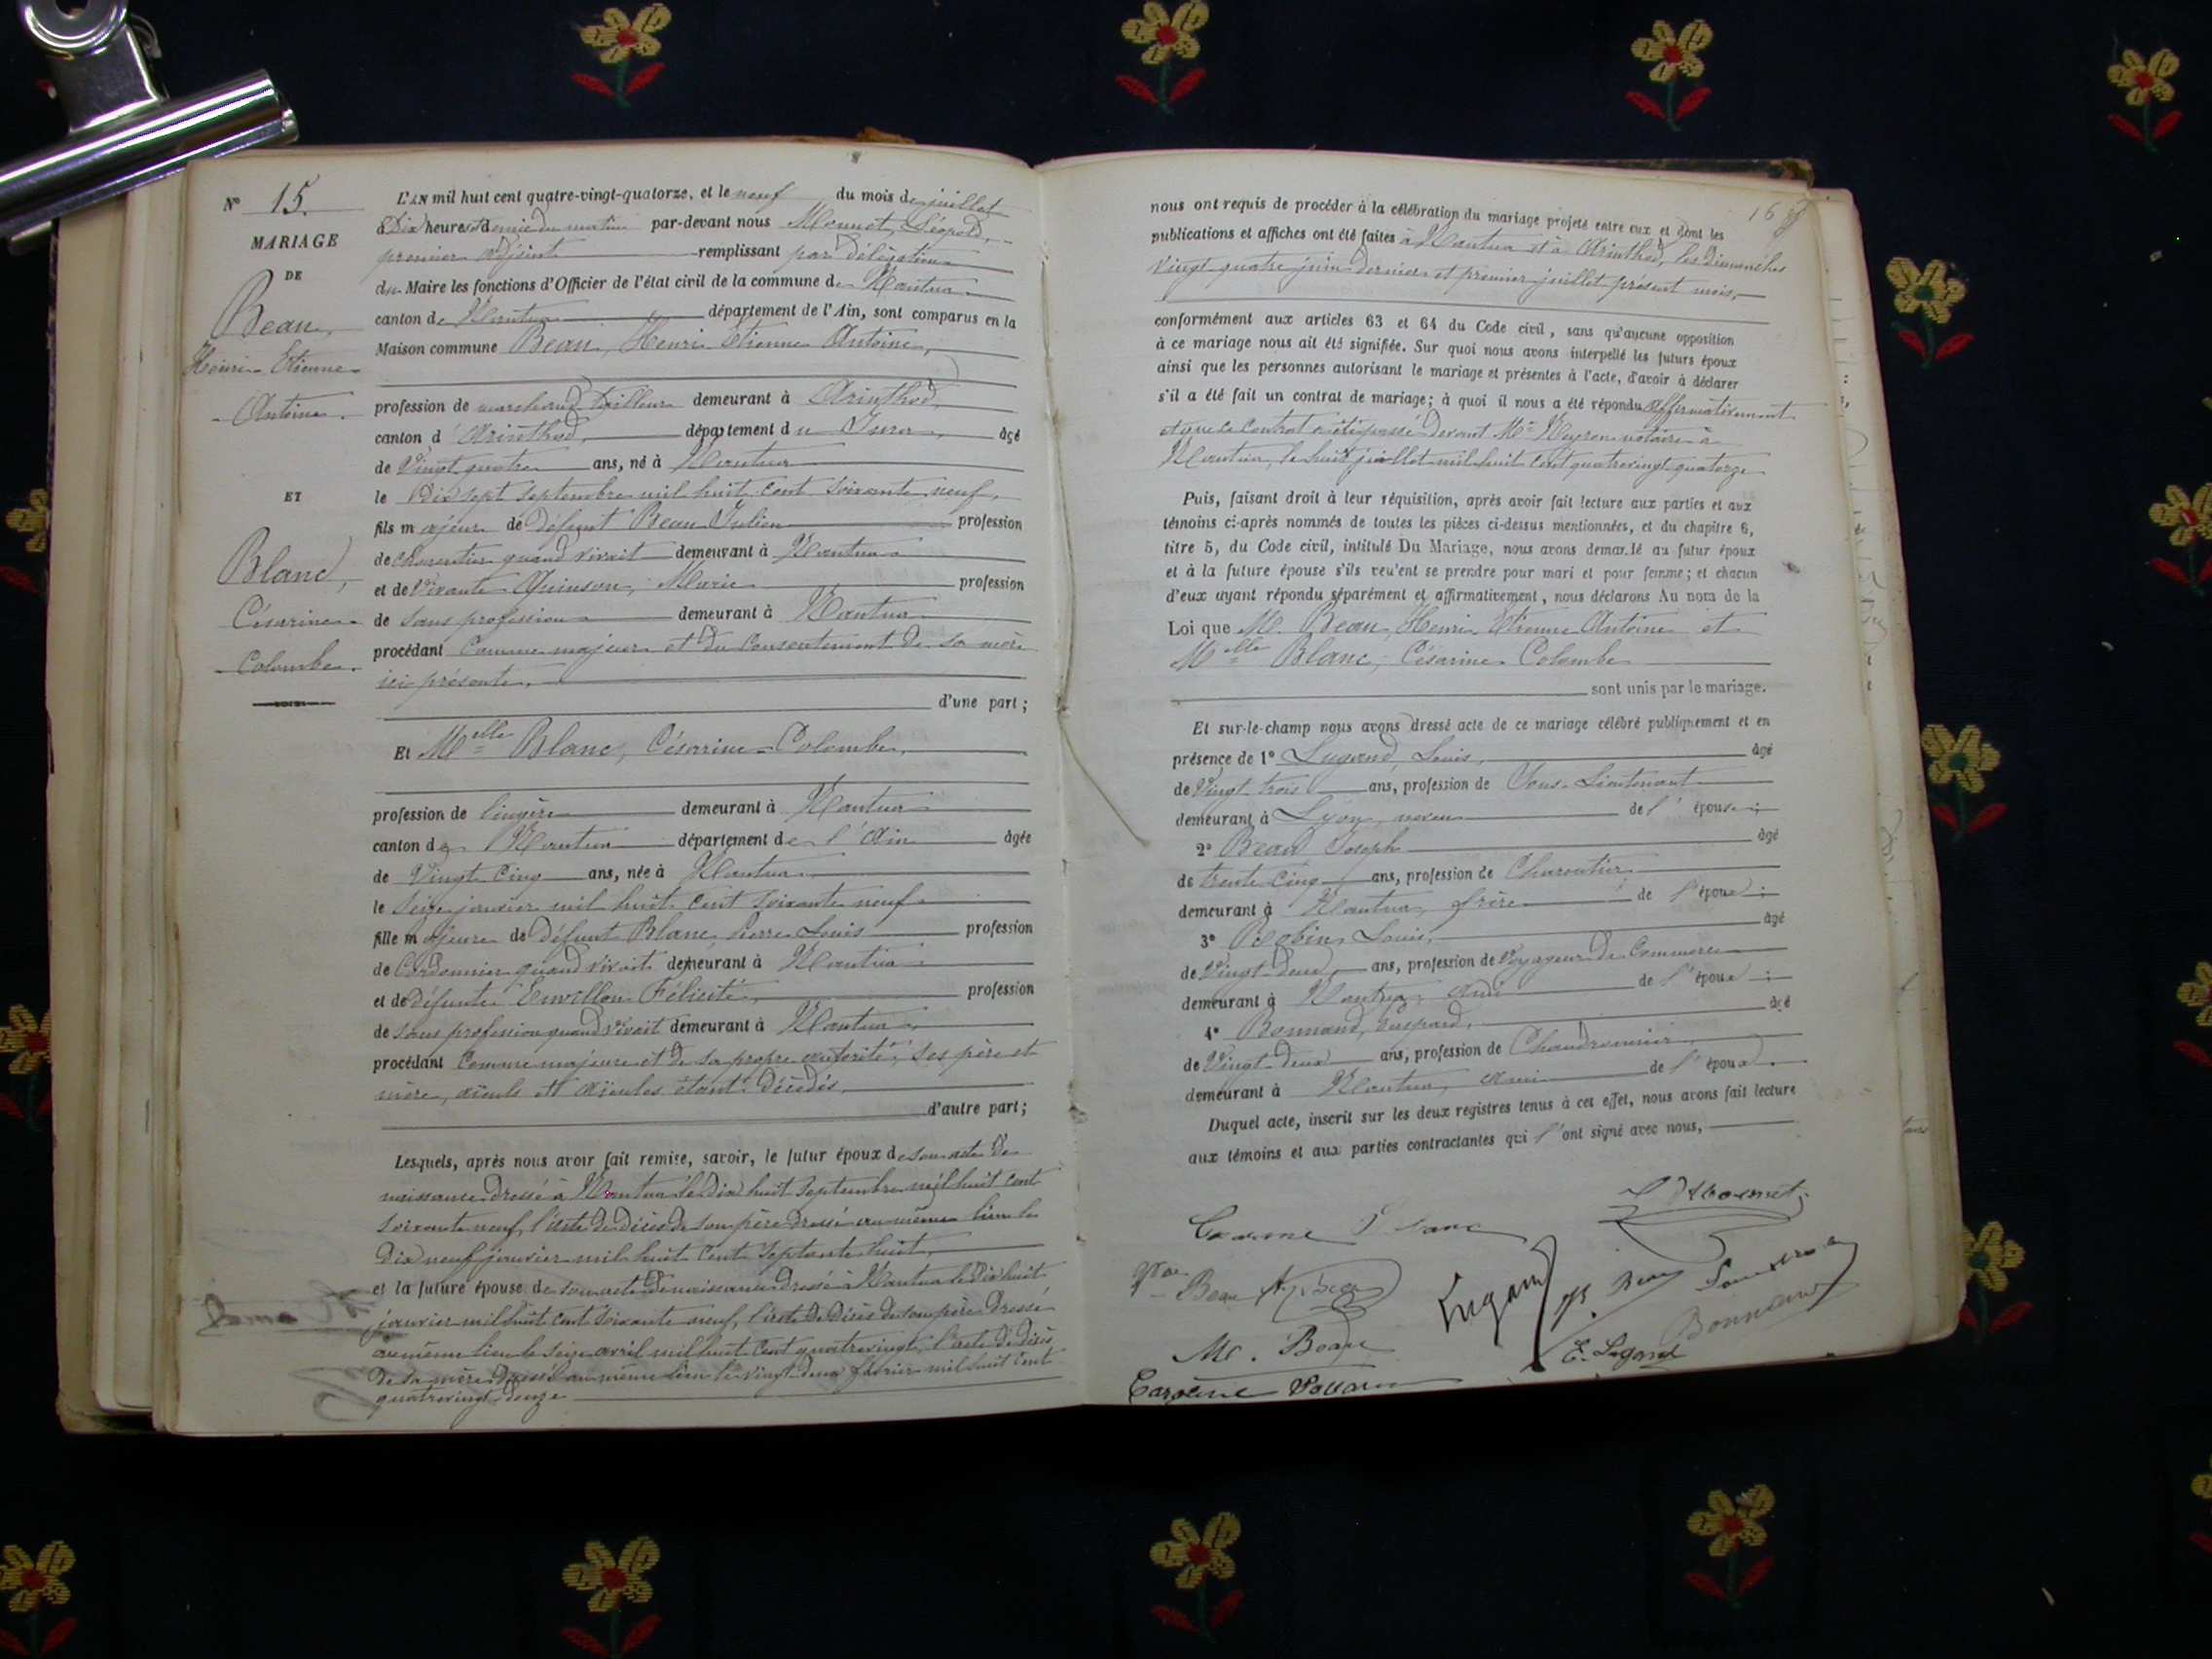 N° 15.
MARIAGE
DE
Beau,
Henri Etienne
Antoine.
ET
Blanc,
Césarine
Colombe.
L'AN mil huit cent quatre-vingt-quatorze, et le neuf du mois de juillet
à Dix heures et demie du matin par-devant nous Monnet, Léopold,
premier adjoint remplissant par délégation
du Maire les fonctions d'Officier de l'état civil de la commune de Nantua
canton de Nantua département de l'Ain, sont comparus en la
Maison commune Beau, Henri Etienne Antoine,
profession de marchand tailleur demeurant à Arinthod,
canton d'Arinthod, département du Jura, âgé
de Vingt quatre ans, né à Nantua
le Dix sept Septembre mil huit cent soixante neuf,
fils majeur de Défunt Beau Julien profession
de charcutier quand vivait demeurant à Nantua
et de Vivante Quinson, Marie profession
de sans profession demeurant à Nantua
procédant Comme majeur et du Consentement de sa mère
ici présente,
d'une part;
Et Melle Blanc, Césarine Colombe,
profession de lingère demeurant à Nantua
canton de Nantua département de l'Ain âgée
de Vingt Cinq ans, née à Nantua
le Seize janvier mil huit Cent soixante neuf
fille majeure de Défunt Blanc, Pierre Louis profession
de Cordonnier quand vivait demeurant à Nantua
et de Défunte Félicité, profession
de sans profession quand vivait demeurant à Nantua
procédant Comme majeure et de sa propre autorité, ses père et
mère, aïeuls et aïeules étant Décédés,
d'autre part;
Lesquels, après nous avoir fait remise, savoir, le futur époux de son acte de
naissance Dressé à Nantua le Dix huit Septembre mil huit cent
soixante neuf, l'acte de Décès de son père Dressé au même lieu le
Dix neuf janvier mil huit Cent Septante huit,
et la future épouse de son acte de naissance Dressé à Nantua le Dix huit
janvier mil huit cent soixante neuf, l'acte de Décès de son père Dressé
au même lieu le Seize avril mil huit Cent quatre vingt, l'acte de Décès
de sa mère Dressé au même lieu le vingt deux février mil huit Cent
quatre vingt douze
nous ont requis de procéder à la célébration du mariage projeté entre eux et dont les
publications et affiches ont été faites à Nantua et à Arinthod, les Dimanches
Vingt quatre juin dernier et premier juillet présent mois,
conformément aux articles 63 et 64 du Code civil, sans qu'aucune opposition
à ce mariage nous ait été signifiée. Sur quoi nous avons interpellé les futurs époux
ainsi que les personnes autorisant le mariage et présentes à l'acte, d'avoir à déclarer
s'il a été fait un contrat de mariage; à quoi il nous a été répondu affirmativement
et que ce Contrat a été passé Devant Me notaire à
Nantua, le huit juillet mil huit cent quatre vingt quatorze
Puis, faisant droit à leur réquisition, après avoir fait lecture aux parties et aux
témoins ci-après nommés de toutes les pièces ci-dessus mentionnées, et du chapitre 6,
titre 5, du Code civil, intitulé Du Mariage, nous avons demandé au futur époux
et à la future épouse s'ils veulent se prendre pour mari et pour femme; et chacun
d'eux ayant répondu séparément et affirmativement, nous déclarons Au nom de la
Loi que M. Beau Henri Etienne Antoine et
Melle Blanc, Césarine Colombe
sont unis par le mariage.
Et sur-le-champ nous avons dressé acte de ce mariage célébré publiquement et en
présence de 1° Lugand, Louis, âgé
de Vingt trois ans, profession de Sous-Lieutenant
demeurant à Lyon, neveu de l'épouse;
2° Beau Joseph âgé
de trente Cinq ans, profession de Charcutier
demeurant à Nantua, frère de l'époux;
3° Robin Louis, âgé
de Vingt Deux ans, profession de Voyageur de Commerce
demeurant à Nantua, ami de l'époux;
4° Bonnand, Gaspard, âgé
de Vingt Deux ans, profession de Chaudronnier
demeurant à Nantua, ami de l'époux.
Duquel acte, inscrit sur les deux registres tenus à cet effet, nous avons fait lecture
aux témoins et aux parties contractantes qui l'ont signé avec nous,
L Monnet
Blanc
Beau
Lugand
M. Beau
Bonnand
E. Lugand
Caroline